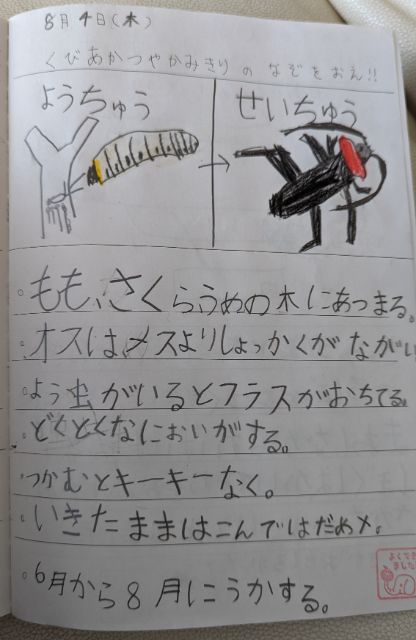 8月4日(木)
くびあかつやかみきりのなぞをおえ!!
ようちゅう
せいちゅう
もも、さくらうめの木にあつまる。
オスはメスよりしょっかくがながい
よう虫がいるとフラスがおちてる。
どくとくなにおいがする。
つかむとキーキーなく。
いきたままはこんではだめ×。
6月から8月にうかする。
よくでき
ました